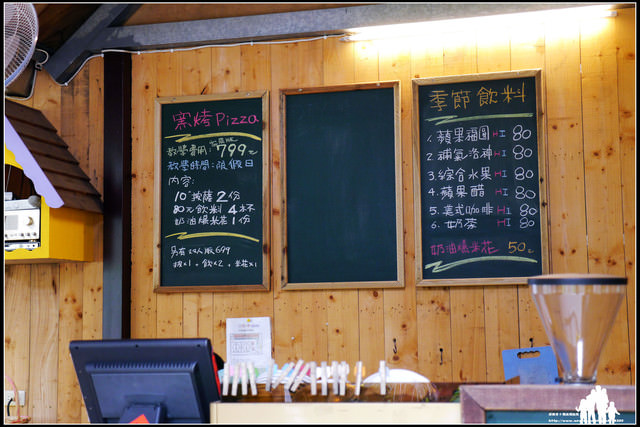 窯烤Pizza
教學費用:799元
教學時間:限假日
內容:
10"披薩2份
80元飲料4杯
奶油爆米花1份
另有 2人版699
披x1、飲x2、米花x1
季節飲料
1.蘋果福圓HI80
2.補氣洛神HI80
3.綜合水果HI80
4.蘋果醋HI80
5.美式咖啡HI80
6.奶茶HI80
奶油爆米花50元